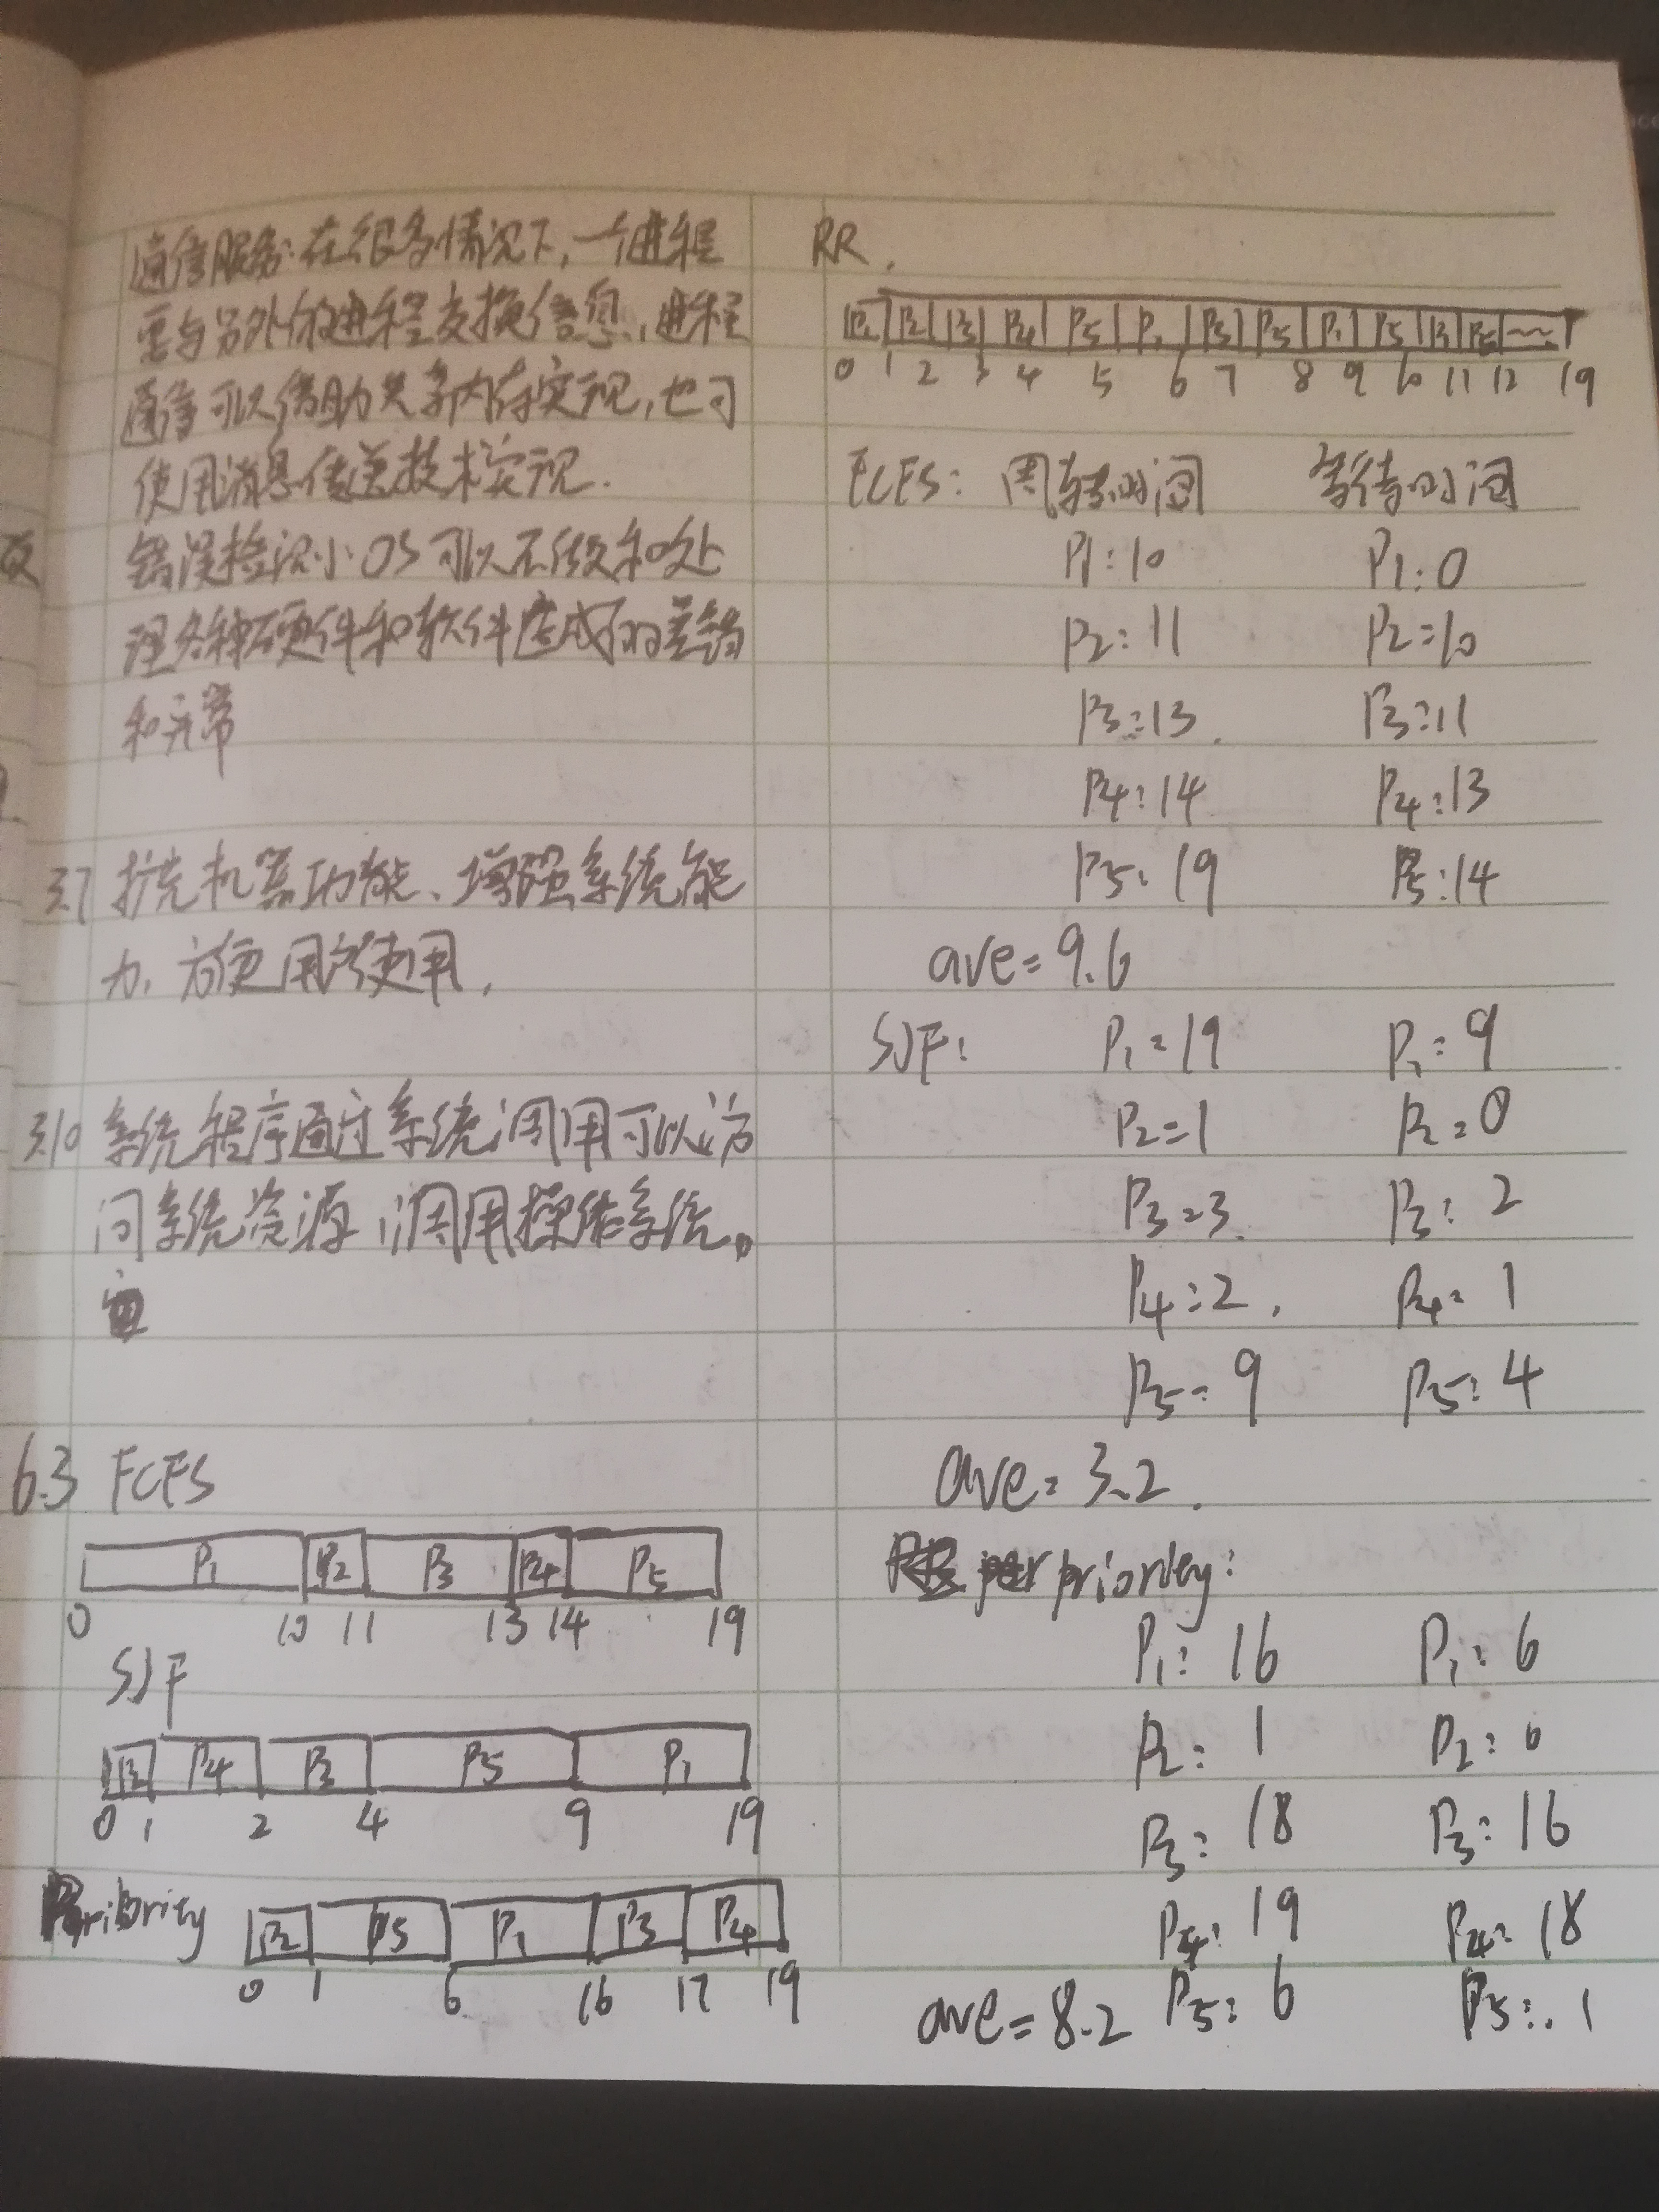 通信服务:在很多情况下,一个进程
要与另外的进程交换信息,进程
通信可以借助共享内存实现,也可
使用消息传送技术实现.
错误检测:OS可以不做和处
理各种硬件和软件造成的差错
和异常
3.7 扩充机器功能、增强系统能
力,方便用户使用,
3.10 系统程序通过系统调用可以访
问系统资源,调用操作系统。
6.3 FCFS
P1 P2 P3 P4 P5
0 10 11 13 14 19
SJF
P2 P4 P3 P5 P1
0 1 2 4 9 19
Priority
P2 P5 P1 P3 P4
0 1 6 16 17 19
RR.
P1 P2 P3 P4 P5 P1 P3 P5 P1 P5 P1 P5 ~~
0 1 2 3 4 5 6 7 8 9 10 11 12 19
FCFS: 周转时间 等待时间
P1:10 P1:0
P2:11 P2=10
P3:13. P3:11
P4:14 P4:13
P5:19 P5:14
ave=9.6
SJF: P1=19 P1=9
P2=1 P2=0
P3=3. P3:2
P4:2. P4=1
P5=9 P5:4
ave=3.2.
priority:
P1:16 P1:6
P2:1 P2:0
P3:18 P3:16
P4:19 P4:18
ave=8.2 P5:6 P5:.1